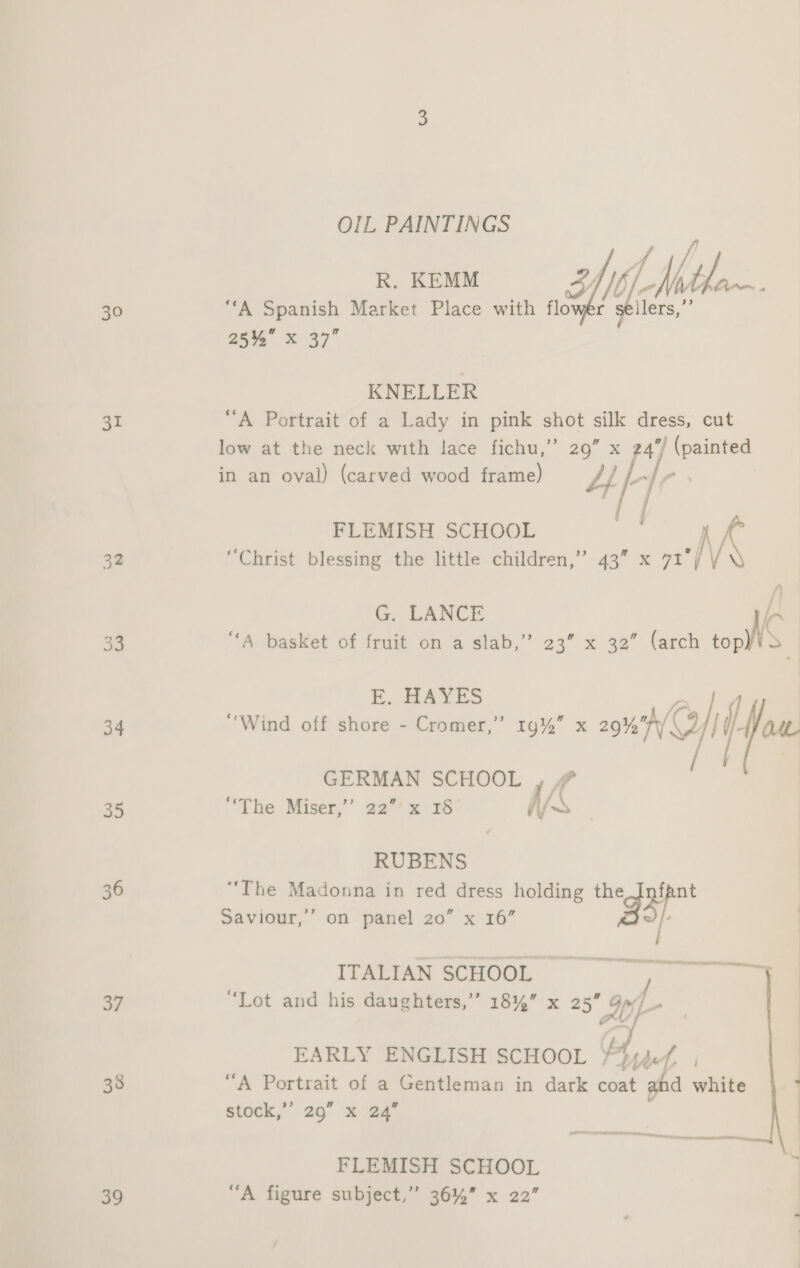 3
OIL PAINTINGS
R. KEMM
30 “A Spanish Market Place with flower sellers,”
25½" x 37"
KNELLER
31 “A Portrait of a Lady in pink shot silk dress, cut
low at the neck with lace fichu,” 29" x 24" (painted
in an oval) (carved wood frame)
FLEMISH SCHOOL
32 “Christ blessing the little children,” 43" x 71" NS
G. LANCE
33 “A basket of fruit on a slab,” 23" x 32" (arch top) NS
E. HAYES
34 “Wind off shore - Cromer,” 19½" x 29½"
GERMAN SCHOOL
35 “The Miser,” 22" x 18 NS
RUBENS
36 “The Madonna in red dress holding the Infant
Saviour,” on panel 20" x 16"
ITALIAN SCHOOL
37 “Lot and his daughters,” 18½" x 25"
EARLY ENGLISH SCHOOL
38 “A Portrait of a Gentleman in dark coat and white
stock,” 29" x 24"
FLEMISH SCHOOL
39 “A figure subject,” 36½" x 22"